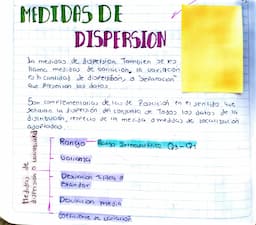 MEDIDAS DE
DISPERSION
Las medidas de dispersion. Tambien se les
llama medidas de variación, la variación
es la cantidad de dispersión, o "Separación"
que presentan los datos.
Son complementarias de las de Posición en el sentido que
señalan la dispersión del conjunto de Todos los datos de la
distribución, respecto de la medida o medidas de localización
adoptadas.
Medidas de
dispersión o variabilidad
Rango
Rango Intercuartilico Q3 - Q1
Varianza
Desviacion típica o
estandar
Desviacion media
Coeficiente de variación